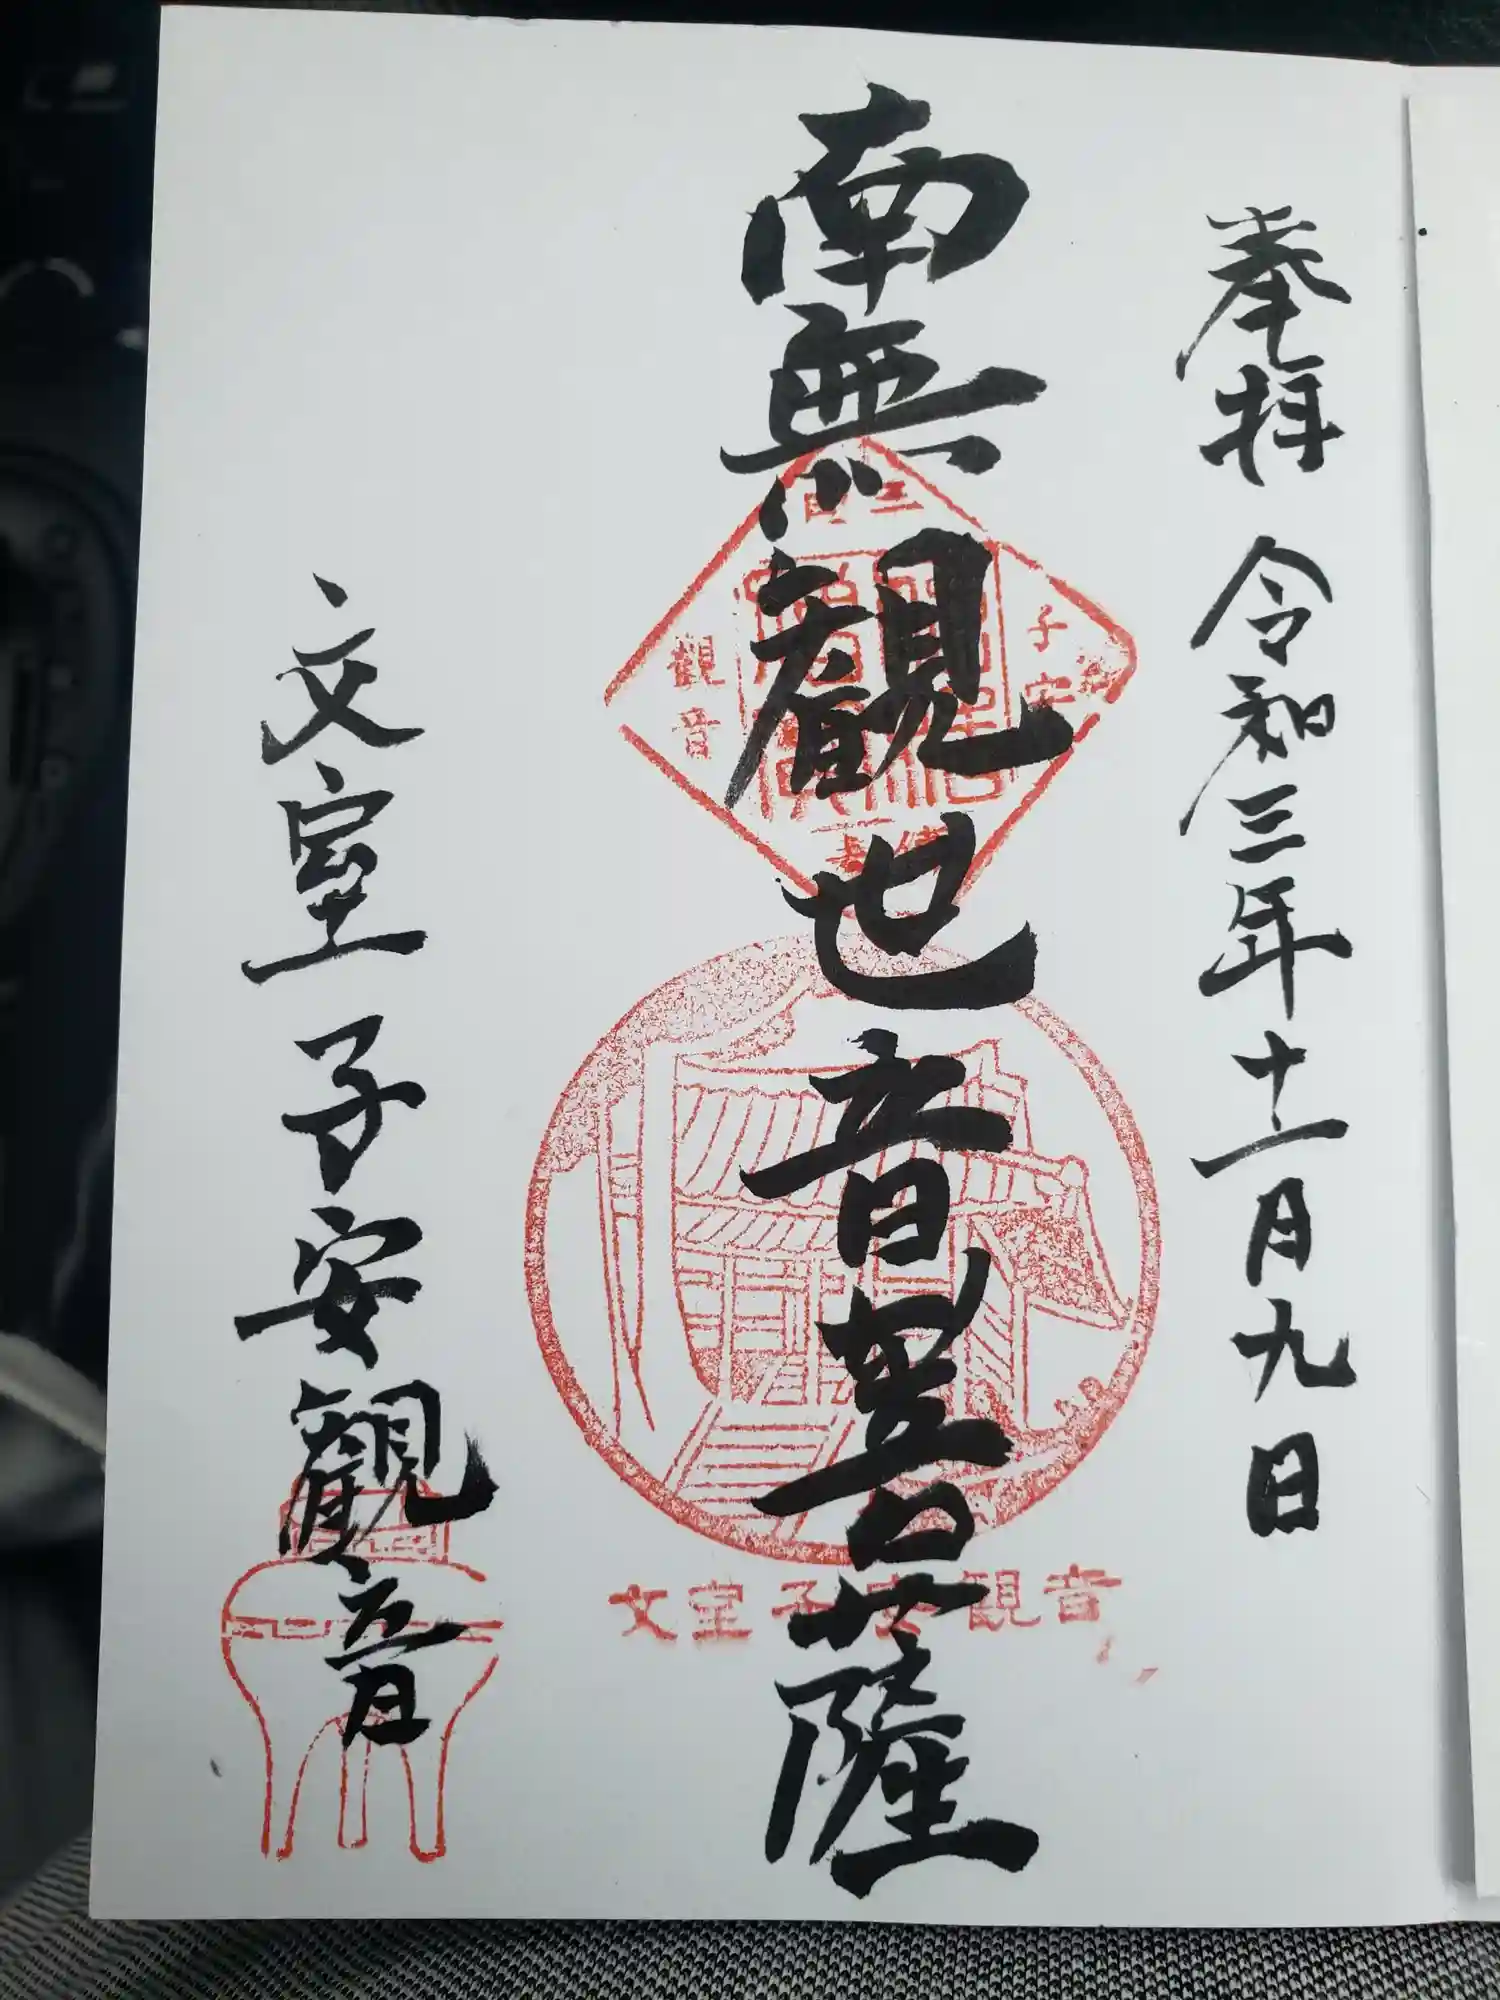 奉拝 令和三年十一月九日
南無観世音菩薩
子安
観音
文室子安観音
文室子安観音